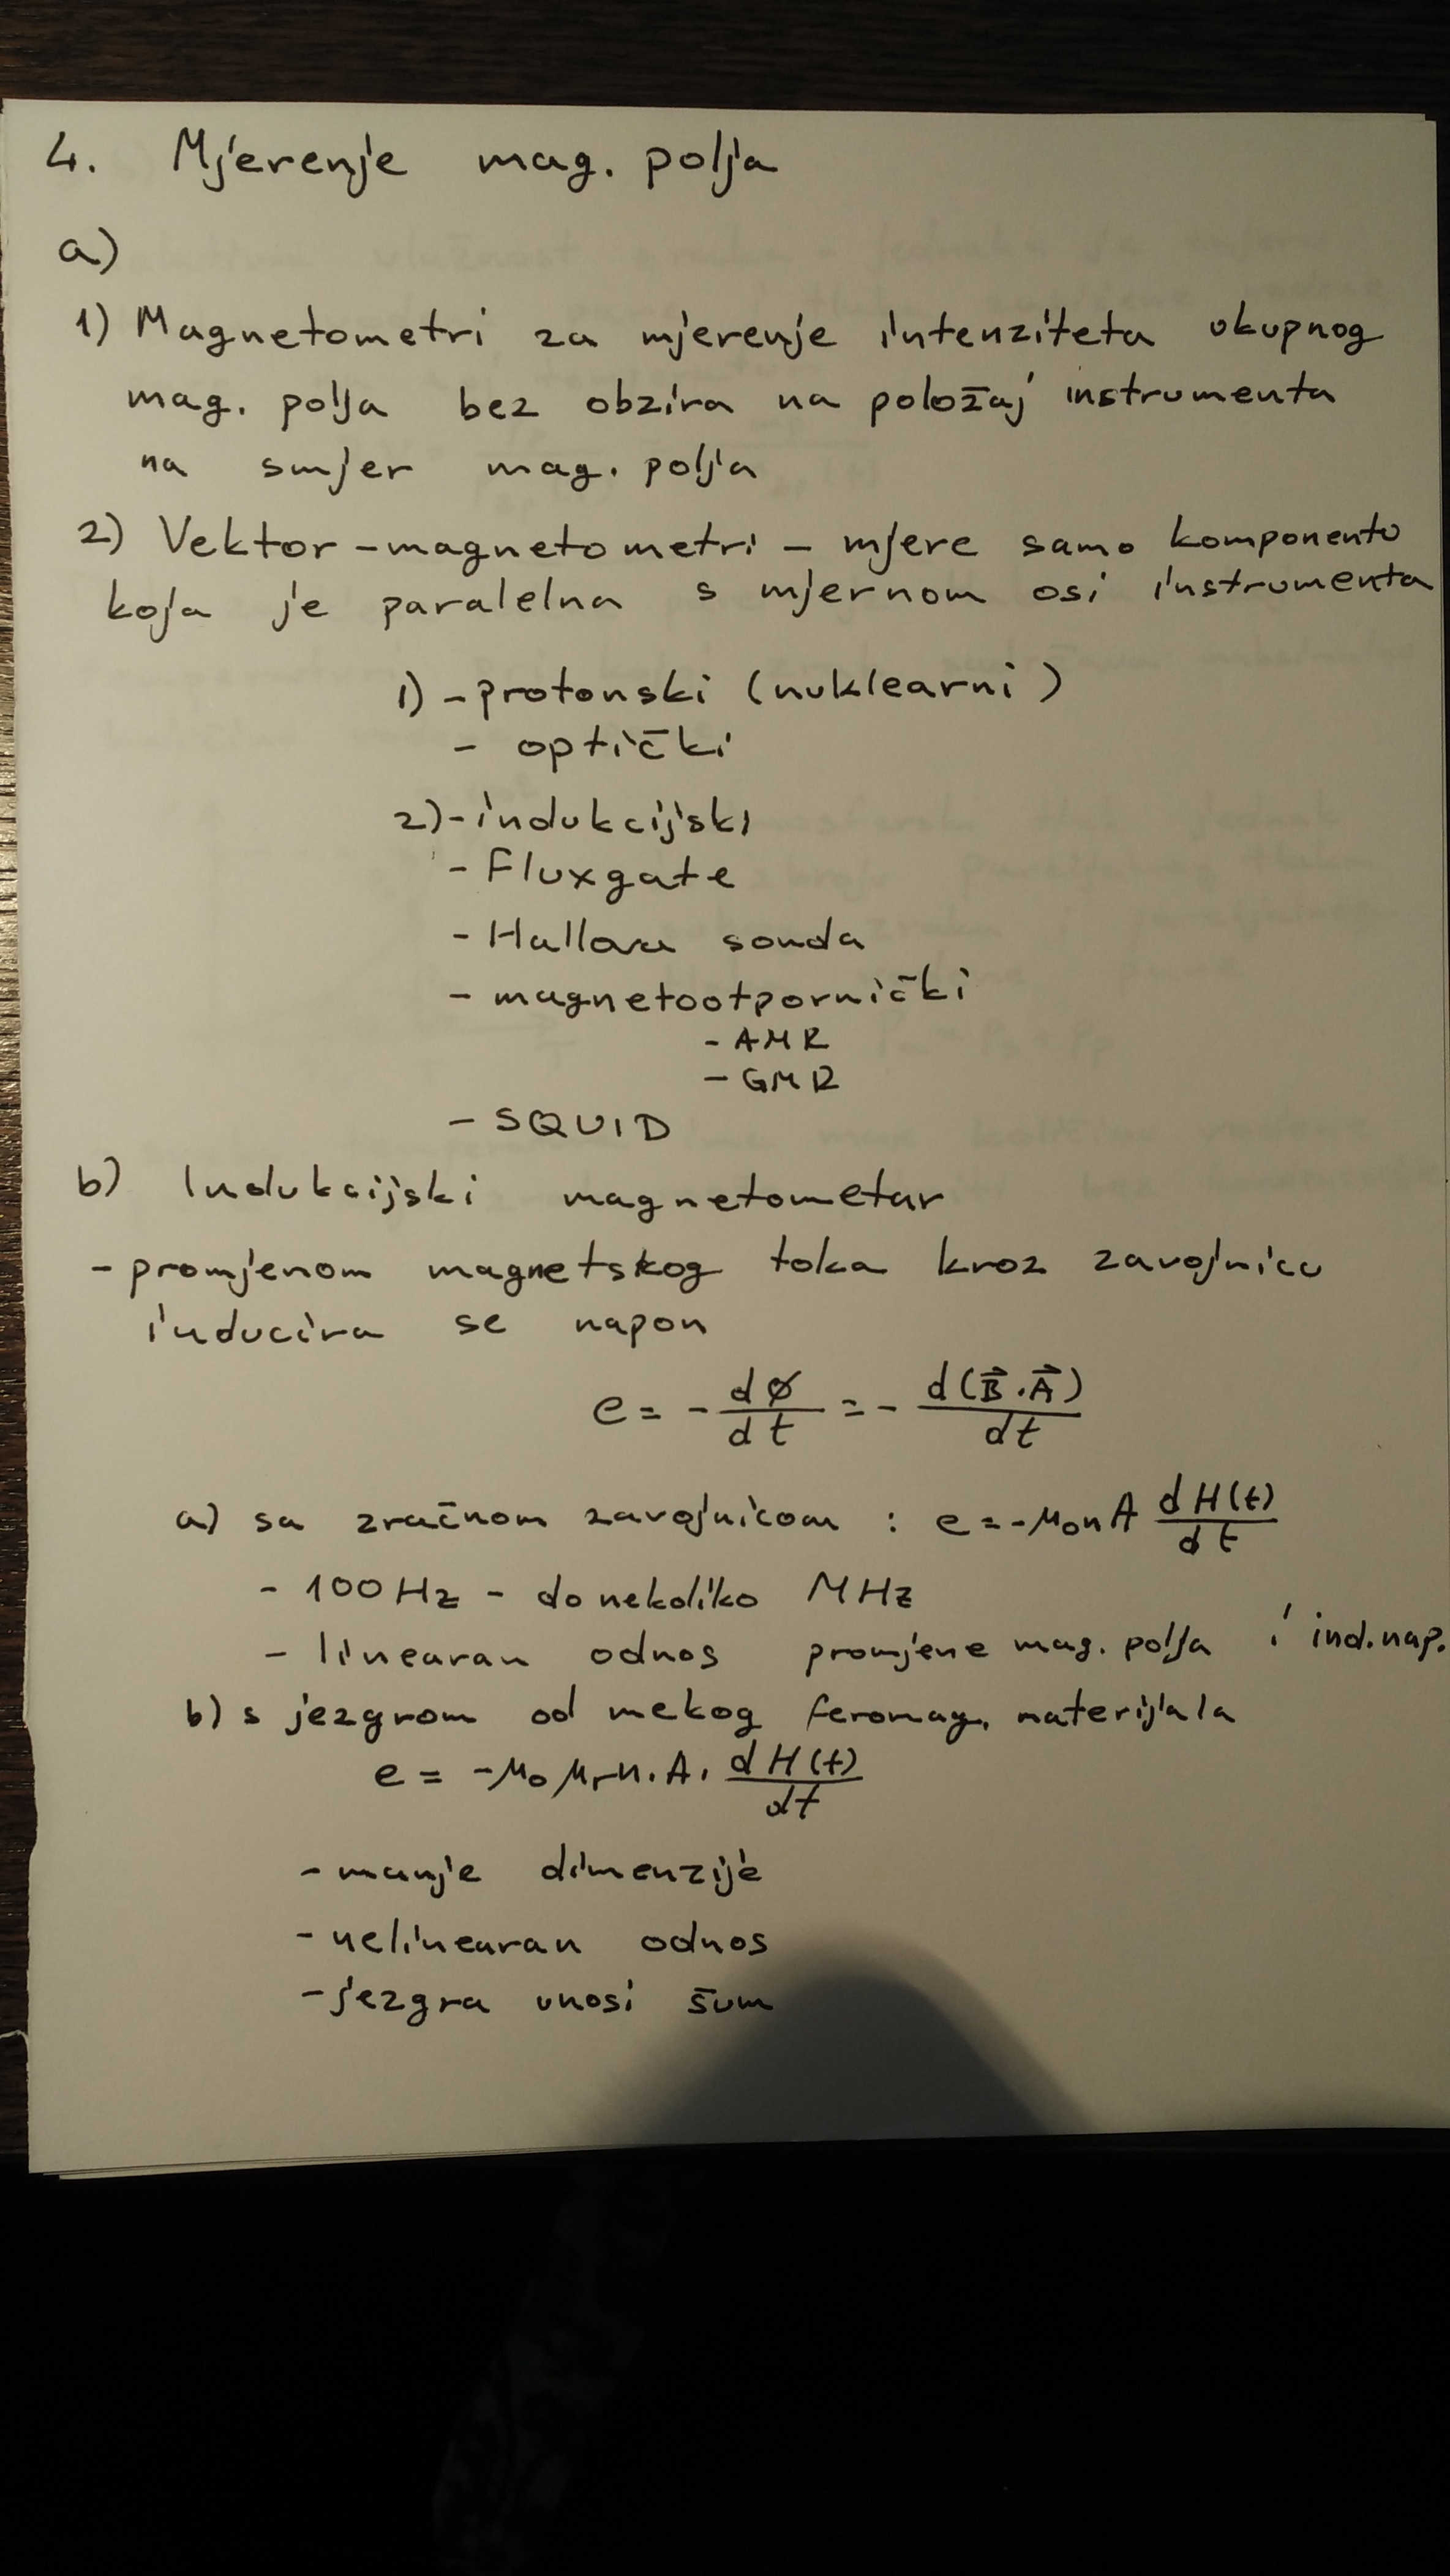 4. Mjerenje mag. polja
a)
1) Magnetometri za mjerenje intenziteta ukupnog
mag. polja bez obzira na položaj instrumenta
na smjer mag. polja
2) Vektor-magnetometri - mjere samo komponentu
koja je paralelna s mjernom osi instrumenta
1) - protonski (nuklearni)
- optički
2) - indukcijski
- Fluxgate
- Hallova sonda
- magnetootpornički
- AMR
- GMR
- SQUID
b) Indukcijski magnetometar
- promjenom magnetskog toka kroz zavojnicu
inducira se napon
e = - dφ/dt = - d(B⃗·A⃗)/dt
a) sa zračnom zavojnicom : e = -μ₀nA dH(t)/dt
- 100Hz - do nekoliko MHz
- linearan odnos promjene mag. polja i ind.nap.
b) s jezgrom od mekog feromag. materijala
e = -μ₀μᵣn·A· dH(t)/dt
- manje dimenzije
- nelinearan odnos
- jezgra unosi šum